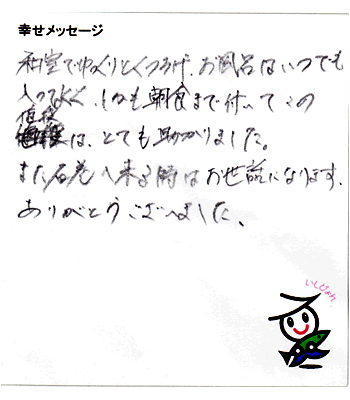 幸せメッセージ
和室でゆっくりとくつろげ、お風呂はいつでも
入ってよく、しかも朝食まで付いてこの
値段は、とても助かりました。
また石巻へ来る時はお世話になります。
ありがとうございました。